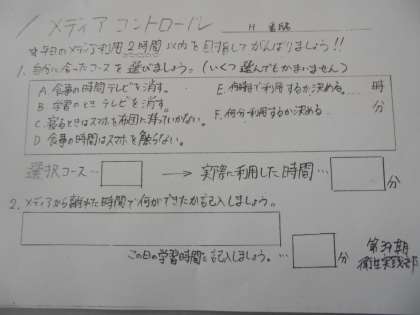 メディアコントロール
平日のメディア利用2時間以内を目指してがんばりましょう!!
1. 自分に合ったコースを選びましょう。(いくつ選んでもかまいません)
A 食事の時間テレビを消す。
B 学習のときテレビを消す。
C 寝るときはスマホを布団に持っていかない。
D 食事の時間はスマホを触らない。
E. 何時まで利用するか決める。…… 時
F. 何分利用するか決める 分
選択コース… → 実際に利用した時間… 分
2. メディアから離れた時間で何ができたか記入しましょう。
この日の学習時間を記入しましょう。… 分
第39期
衛生実践部